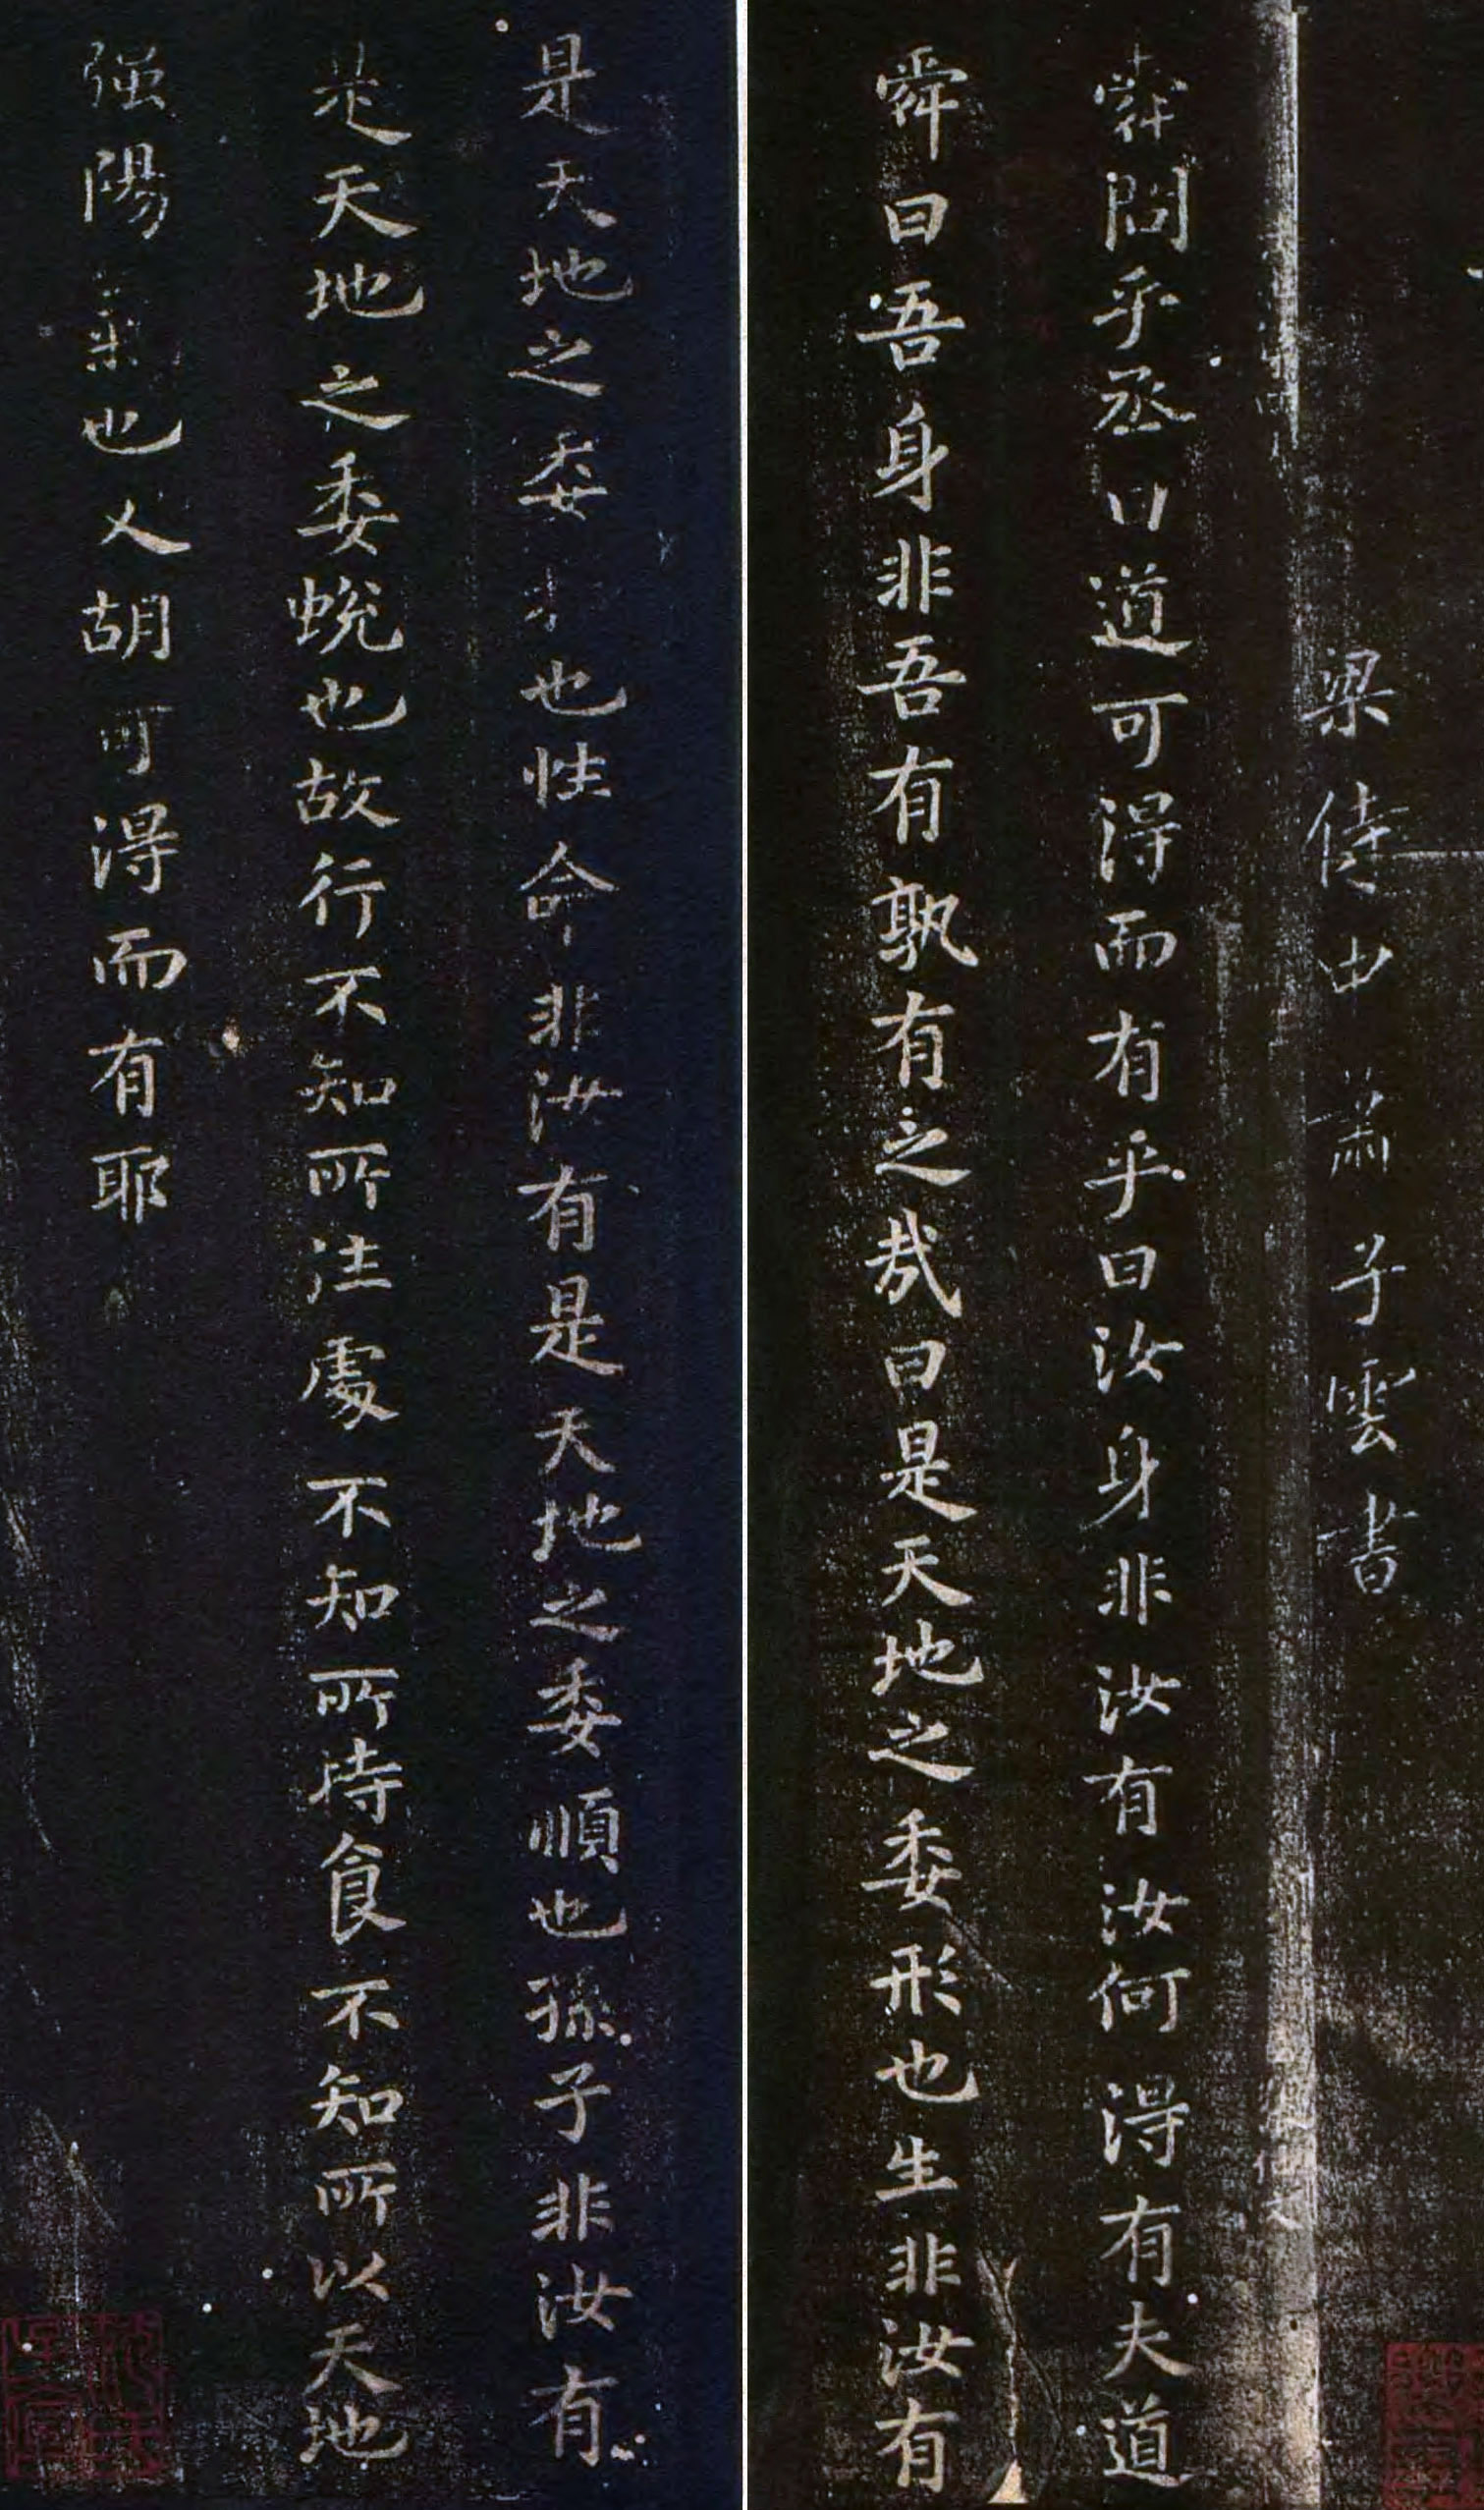 梁侍中蕭子雲書
舜問乎丞曰道可得而有乎曰汝身非汝有汝何得有夫道
舜曰吾身非吾有孰有之哉曰是天地之委形也生非汝有
是天地之委也性命非汝有是天地之委順也孫子非汝有
是天地之委蛻也故行不知所往處不知所持食不知所以天地
强陽氣也人胡可得而有耶